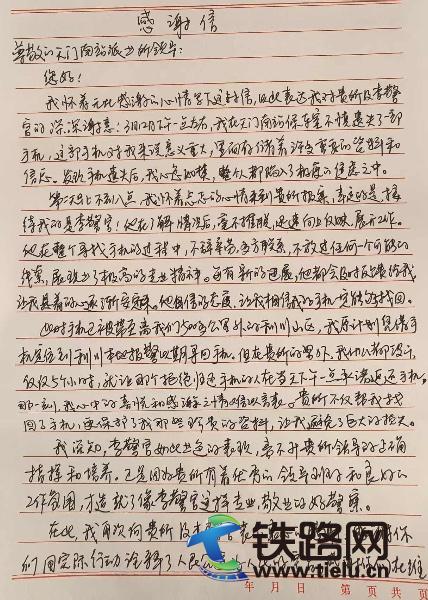 感谢信
尊敬的天门南站派出所领导：
您好！
我怀着无比感谢的心情写下这封信，以此表达我对贵所及李警
官的深深谢意。3月12日下午一点左右，我在天门南站候车室不慎遗失了一部
手机，这部手机对我来说意义重大，里面存储着许多重要的资料和
信息。发现手机遗失后，我心急如焚，整个人都陷入了极度的焦虑之中。
第二天早上八点，我怀着忐忑的心情来到贵所报案，幸运的是，接
待我的是李警官。他在了解情况后，毫不推脱，迅速向上反映，展开工作。
他在整个寻找手机的过程中，不辞辛劳，多方联系，不放过任何一个可能的
线索，展现出了极高的专业精神。每有新的进展，他都会及时反馈给我，
让我悬着的心逐渐安定。他的态度，让我相信我的手机一定能够找回。
此时手机已被带至离我们500多公里外的利川山区，我原计划凭借手
机定位到利川本地报警以期寻回手机。但在贵所的努力下，
仅仅5个小时，就让那个拒绝归还手机的人在当天下午一点承诺返还手机。
那一刻，我心中的喜悦和感激之情难以言表。贵所不仅帮我找
回了手机，更保护了我那些珍贵的资料，让我避免了巨大的损失。
我深知，李警官如此出色的表现，离不开贵所领导的正确
指挥和培养。正是因为贵所有着优秀的领导班子和良好的
工作氛围，才造就了像李警官这样专业、敬业的好警察。
在此，我再次向贵所及李警官表
们用实际行动诠释了人民
年 月 日 第 页 共 页
铁路网
www.tielu.cn